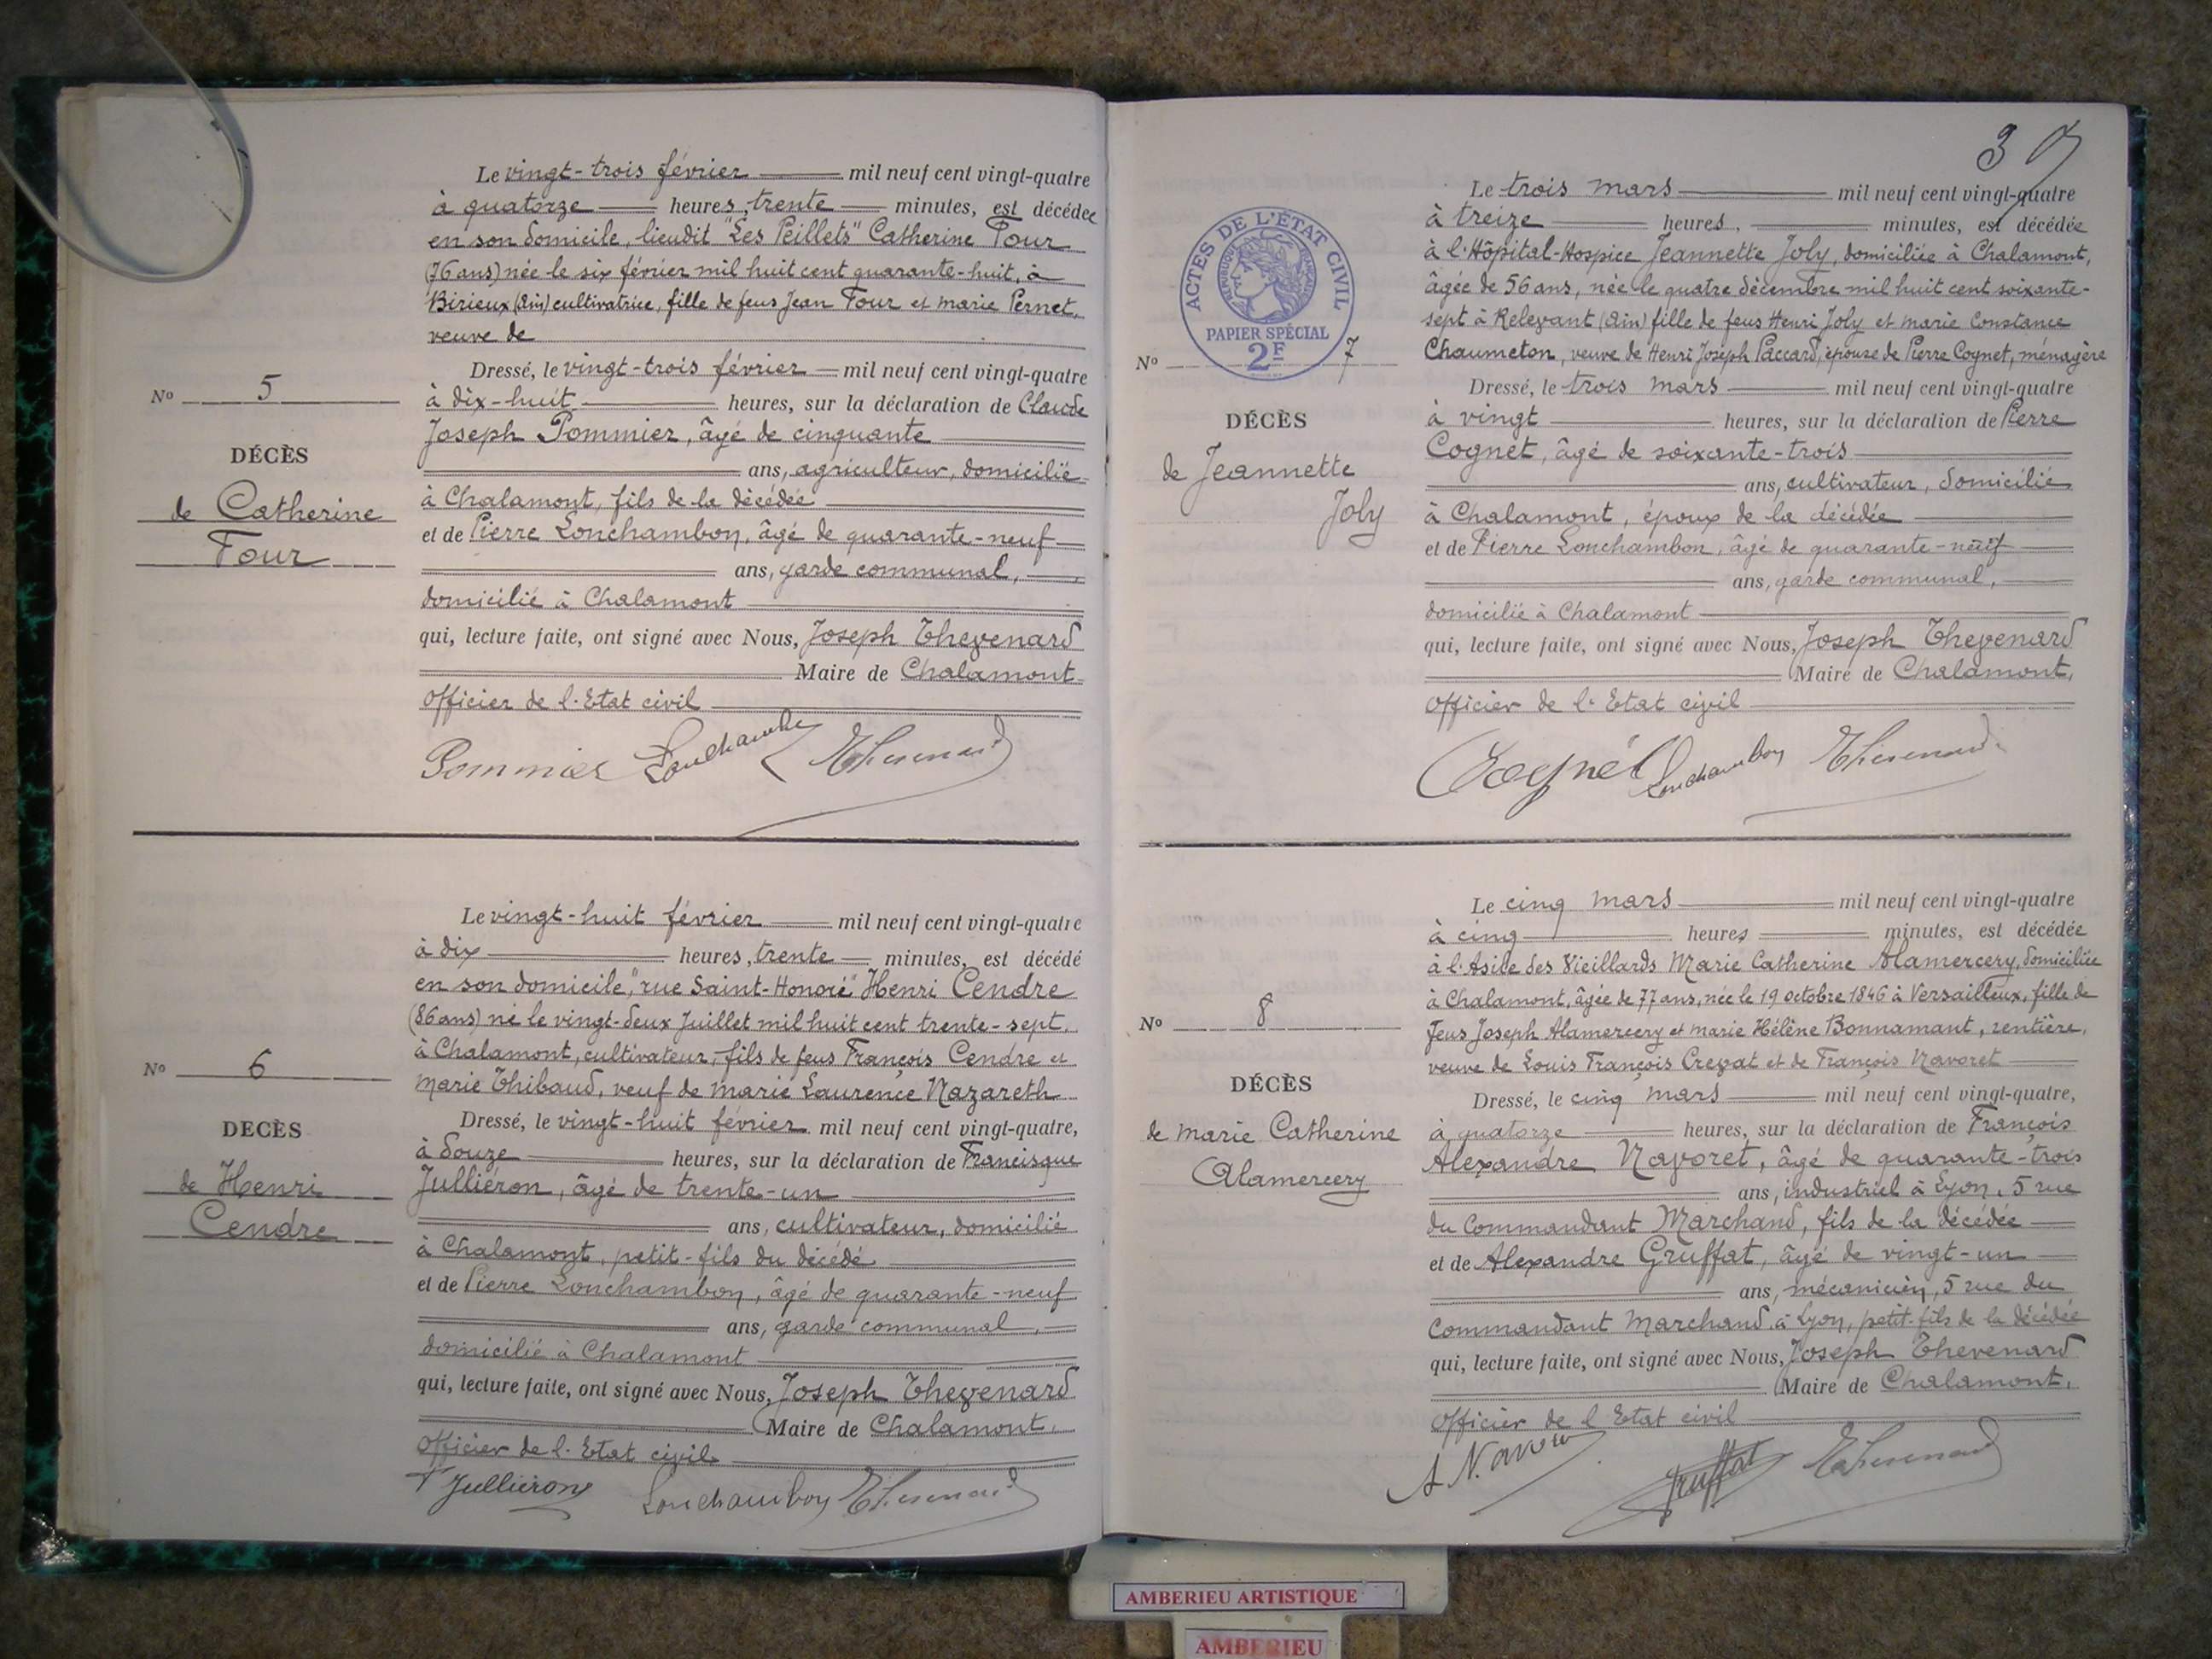 Le vingt-trois février mil neuf cent vingt-quatre
à quatorze heures, trente minutes, est décédée
en son domicile, lieudit "Les Peillets" Catherine Four
(76 ans) née le six février mil huit cent quarante-huit, à
Birieux (Ain) cultivatrice, fille de feus Jean Four et marie Pernet,
veuve de
Dressé, le vingt-trois février mil neuf cent vingt-quatre
No 5
à dix-huit heures, sur la déclaration de Claude
Joseph Pommier, âgé de cinquante
DÉCÈS
ans, agriculteur, domicilié
à Chalamont, fils de la décédée
de Catherine
et de Pierre Lonchambon, âgé de quarante-neuf
Four
ans, garde communal,
domicilié à Chalamont
qui, lecture faite, ont signé avec Nous, Joseph Thevenard
Maire de Chalamont
Officier de l'Etat civil
Pommier Lonchambon Thevenard
Le vingt-huit février mil neuf cent vingt-quatre
à dix heures, trente minutes, est décédé
en son domicile, "rue Saint-Honoré" Henri Cendre
(86 ans) né le vingt-deux Juillet mil huit cent trente-sept,
à Chalamont, cultivateur, fils de feus François Cendre et
No 6
marie Thibaud, veuf de marie Laurence Nazareth
Dressé, le vingt-huit février mil neuf cent vingt-quatre,
DECÈS
à douze heures, sur la déclaration de Francisque
de Henri
Jullieron, âgé de trente-un
Cendre
ans, cultivateur, domicilié
à Chalamont, petit-fils du décédé
et de Pierre Lonchambon, âgé de quarante-neuf
ans, garde communal,
domicilié à Chalamont
qui, lecture faite, ont signé avec Nous, Joseph Thevenard
Maire de Chalamont.
Officier de l'Etat civil
F Jullieron Lonchambon Thevenard
3
Le trois mars mil neuf cent vingt-quatre
à treize heures, minutes, est décédée
à l'Hôpital-Hospice Jeannette Joly, domiciliée à Chalamont,
âgée de 56 ans, née le quatre décembre mil huit cent soixante-
sept à Relevant (Ain) fille de feus Henri Joly et marie Constance
Chaumeton, veuve de Henri Joseph Paccard, épouse de Pierre Cognet, ménagère
ACTES DE L'ÉTAT CIVIL
RÉPUBLIQUE FRANÇAISE
PAPIER SPÉCIAL
2F
No 7
Dressé, le trois mars mil neuf cent vingt-quatre
DÉCÈS
à vingt heures, sur la déclaration de Pierre
Cognet, âgé de soixante-trois
de Jeannette
ans, cultivateur, domicilié
Joly
à Chalamont, époux de la décédée
et de Pierre Lonchambon, âgé de quarante-neuf
ans, garde communal,
domicilié à Chalamont
qui, lecture faite, ont signé avec Nous, Joseph Thevenard
Maire de Chalamont,
Officier de l'Etat civil
Cognet Lonchambon Thevenard
Le cinq mars mil neuf cent vingt-quatre
à cinq heures minutes, est décédée
à l'Asile des Vieillards Marie Catherine Alamercery, domiciliée
à Chalamont, âgée de 77 ans, née le 19 octobre 1846 à Versailleux, fille de
No 8
feus Joseph Alamercery et marie Hélène Bonnamant, rentière,
veuve de Louis François Crevat et de François Navoret
DÉCÈS
Dressé, le cinq mars mil neuf cent vingt-quatre,
de marie Catherine
à quatorze heures, sur la déclaration de François
Alamercery
Alexandre Navoret, âgé de quarante-trois
ans, industriel à Lyon, 5 rue
du Commandant Marchand, fils de la décédée
et de Alexandre Gruffat, âgé de vingt-un
ans, mécanicien, 5 rue du
Commandant Marchand à Lyon, petit-fils de la décédée
qui, lecture faite, ont signé avec Nous, Joseph Thevenard
Maire de Chalamont,
Officier de l'Etat civil
A Navoret Gruffat Thevenard
AMBERIEU ARTISTIQUE
AMBERIEU